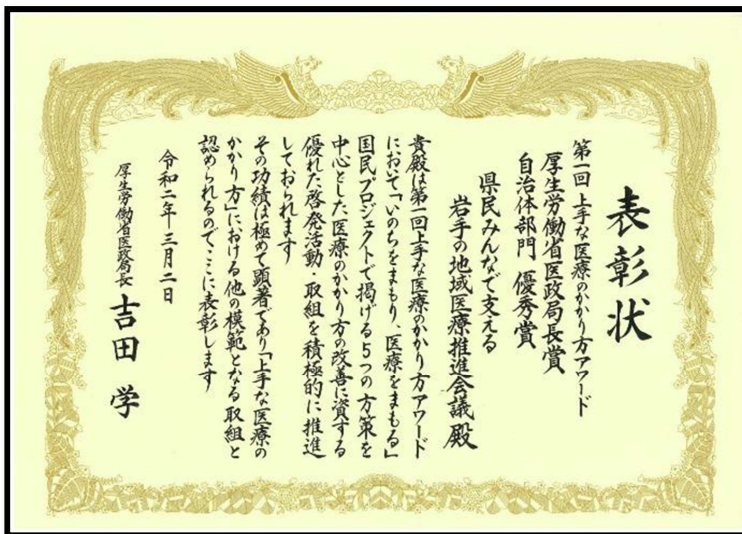 表彰状
第一回 上手な医療のかかり方アワード
厚生労働省医政局長賞
自治体部門 優秀賞
県民みんなで支える
岩手の地域医療推進会議 殿
貴殿は第一回上手な医療のかかり方アワード
において「いのちをまもり、医療をまもる」
国民プロジェクトで掲げる5つの方策を
中心とした医療のかかり方の改善に資する
優れた啓発活動・取組を積極的に推進
しておられます
その功績は極めて顕著であり「上手な医療の
かかり方」における他の模範となる取組と
認められるので、ここに表彰します
令和二年三月二日
厚生労働省医政局長 吉田 学